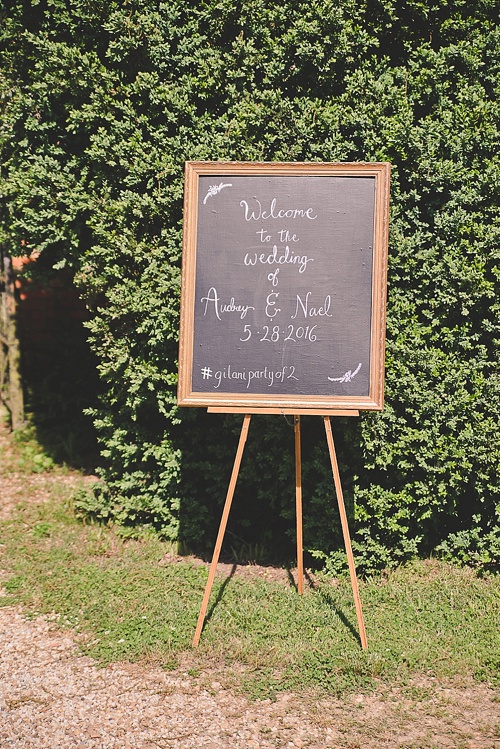 Welcome
to the
wedding
of
Audrey & Nael
5·28·2016
#gilanipartyof2